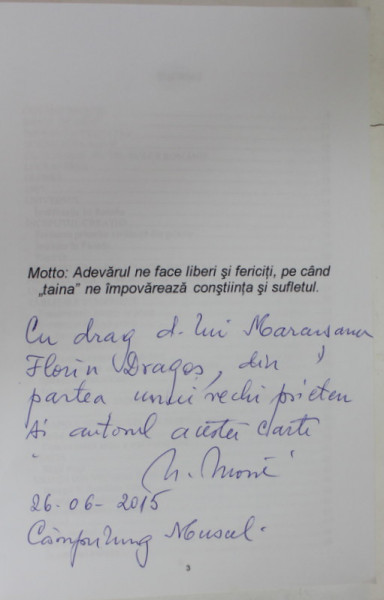 Motto: Adevărul ne face liberi şi fericiţi, pe când
„taina” ne împovărează conştiinţa şi sufletul.
Cu drag d-lui
Florin Dragoş, din
partea unui vechi prieten
şi autorul acestei carte
26-06-2015
Câmpulung Muscel.
3